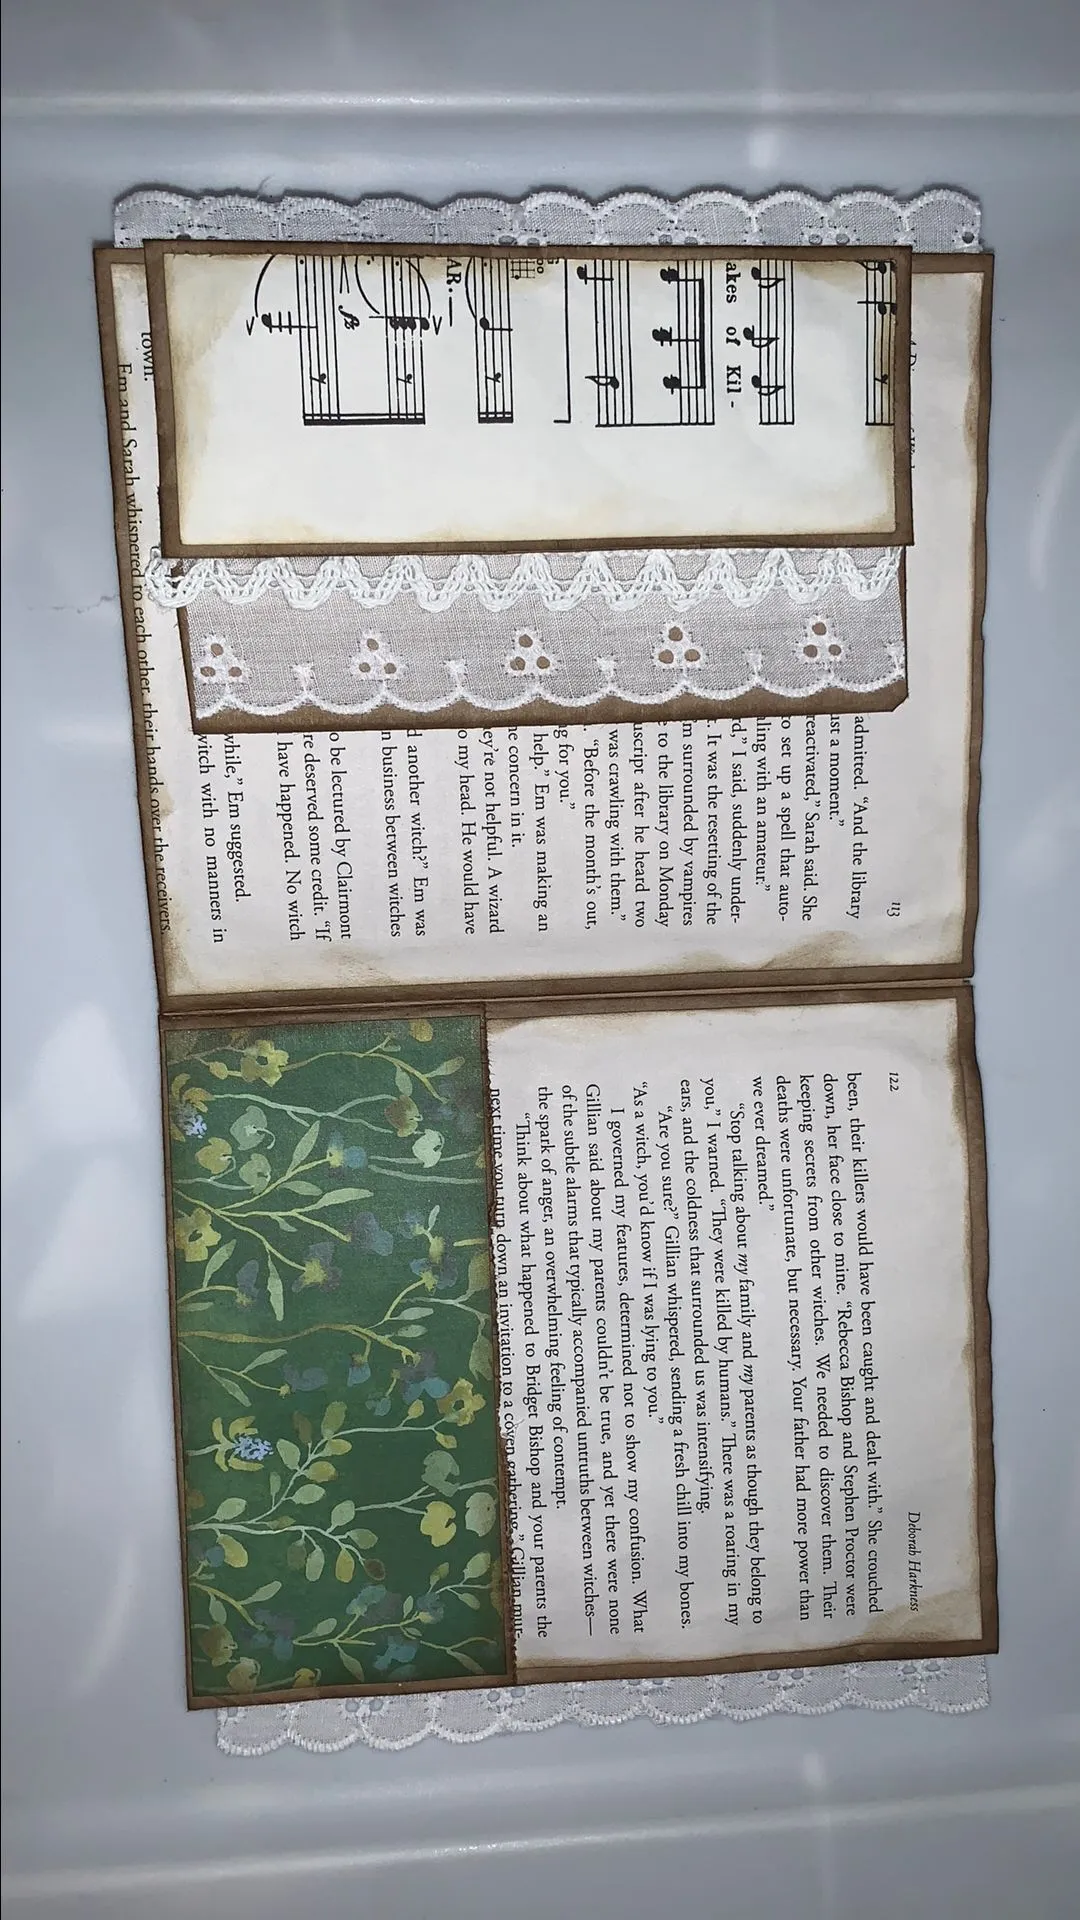 akes of Kil -
AR.
113
admitted. “And the library
ust a moment.”
reactivated,” Sarah said. She
o set up a spell that auto-
ling with an amateur.”
rd,” I said, suddenly under-
. It was the resetting of the
m surrounded by vampires
e to the library on Monday
uscript after he heard two
was crawling with them.”
. “Before the month’s out,
g for you.”
help,” Em was making an
e concern in it.
ey’re not helpful. A wizard
o my head. He would have
d another witch?” Em was
n business between witches
o be lectured by Clairmont
re deserved some credit. “If
have happened. No witch
while,” Em suggested.
witch with no manners in
town.
Em and Sarah whispered to each other, their hands over the receivers.
122
Deborah Harkness
been, their killers would have been caught and dealt with.” She crouched
down, her face close to mine. “Rebecca Bishop and Stephen Proctor were
keeping secrets from other witches. We needed to discover them. Their
deaths were unfortunate, but necessary. Your father had more power than
we ever dreamed.”
“Stop talking about my family and my parents as though they belong to
you,” I warned. “They were killed by humans.” There was a roaring in my
ears, and the coldness that surrounded us was intensifying.
“Are you sure?” Gillian whispered, sending a fresh chill into my bones.
“As a witch, you’d know if I was lying to you.”
I governed my features, determined not to show my confusion. What
Gillian said about my parents couldn’t be true, and yet there were none
of the subtle alarms that typically accompanied untruths between witches—
the spark of anger, an overwhelming feeling of contempt.
“Think about what happened to Bridget Bishop and your parents the
next time you turn down an invitation to a coven gathering,” Gillian mur-